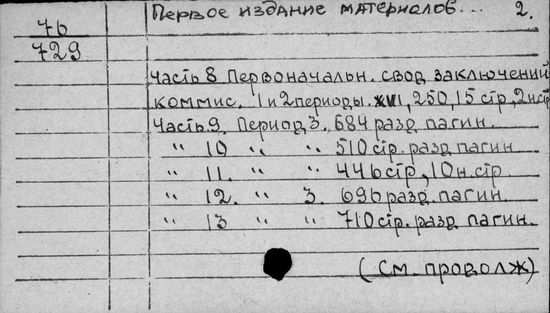 76
729
Первое издание материалов... 2.
Часть 8 Первоначальн. свод заключений
коммис. 1 и 2 периоды. XVI, 250, 15 стр, 2 н стр
Часть 9. Период 3. 684 разд. пагин.
" 10 " " 510 стр. разд. пагин
" 11. " " 446 стр, 10 н. стр.
" 12. " 3. 696 разд. пагин.
" 13 " " 710 стр. разд. пагин.
(См. продолж)